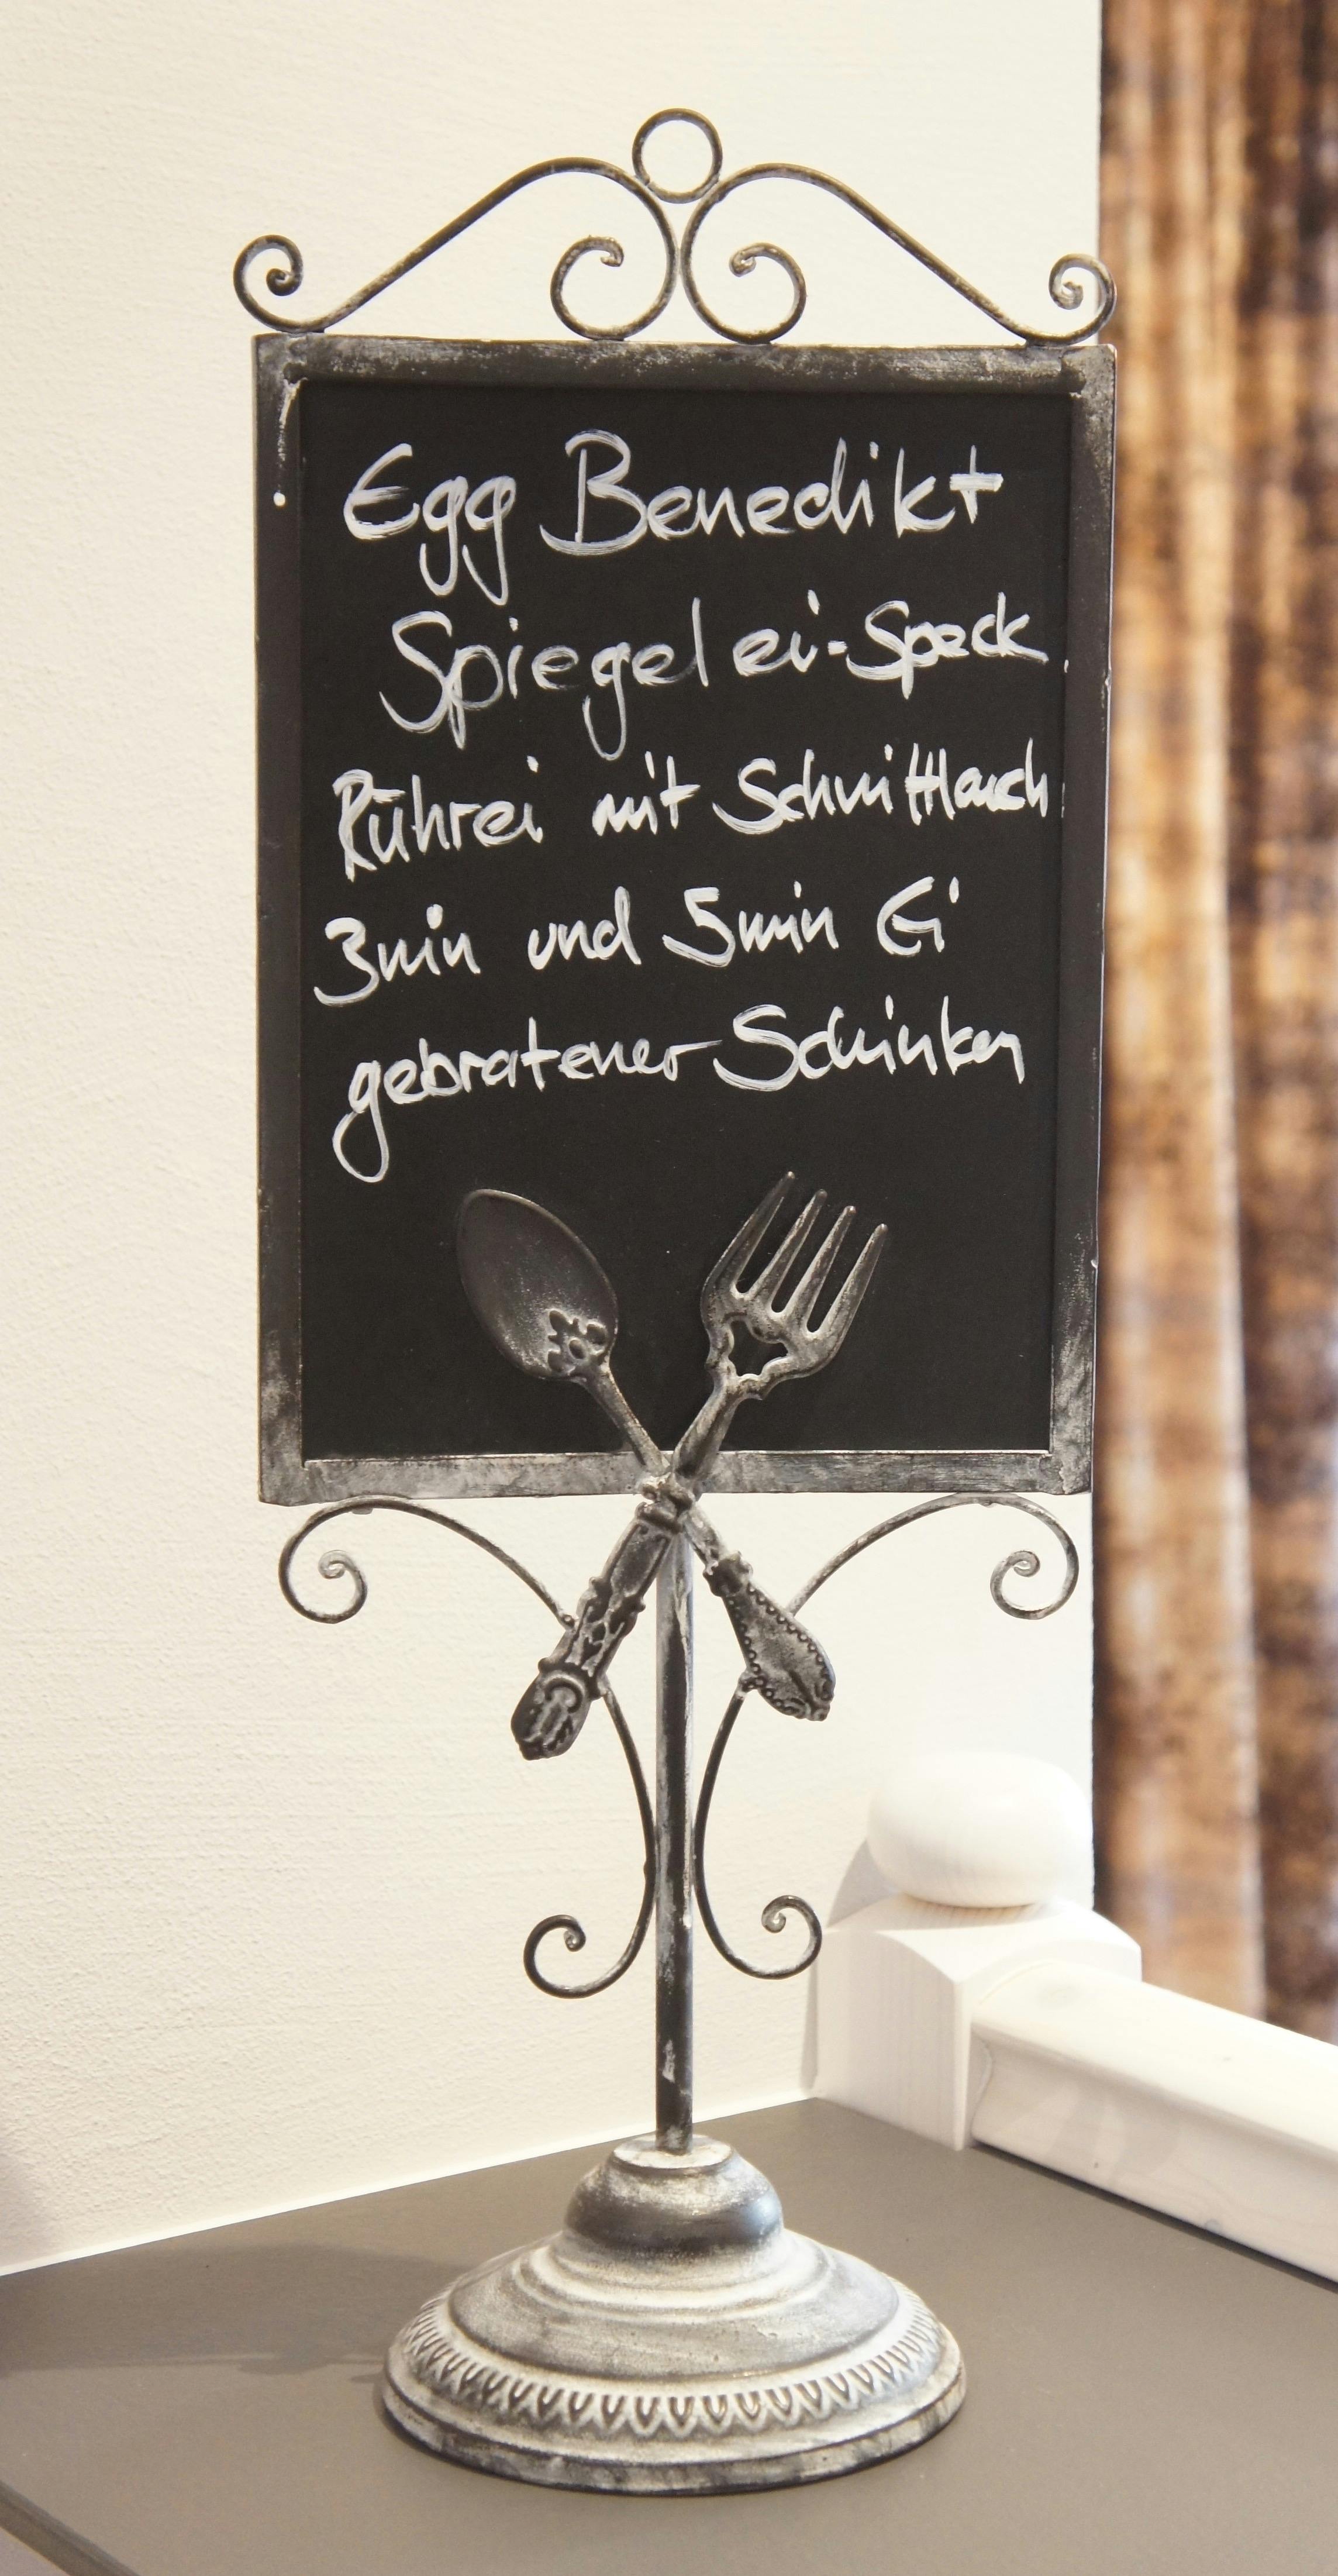 Egg Benedikt
Spiegelei-Speck
Rührei mit Schnittlauch
3min und 5min Ei
gebratener Schinken